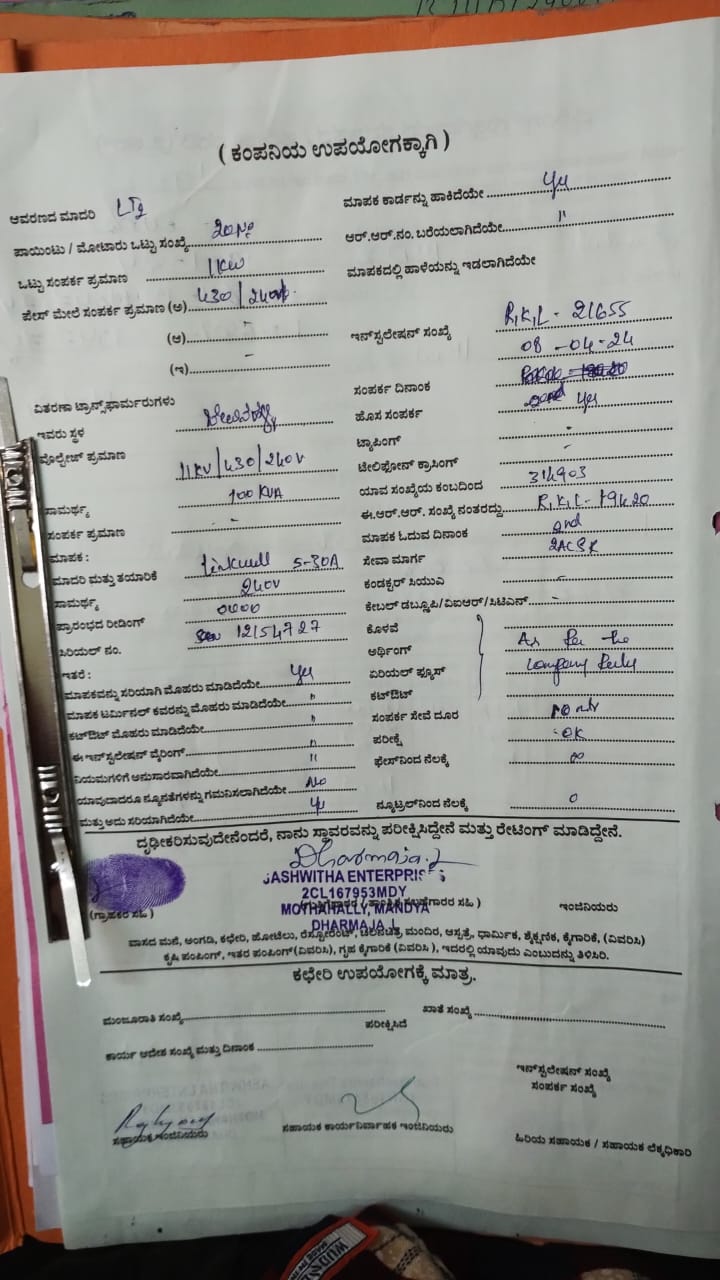 ( ಕಂಪನಿಯ ಉಪಯೋಗಕ್ಕಾಗಿ )
ಆವರಣದ ಮಾದರಿ LT2
ಮಾಪಕ ಕಾರ್ಡನ್ನು ಹಾಕಿದೆಯೇ yes
ಪಾಯಿಂಟು / ಮೋಟಾರು ಒಟ್ಟು ಸಂಖ್ಯೆ
ಆರ್.ಆರ್.ನಂ. ಬರೆಯಲಾಗಿದೆಯೇ "
ಒಟ್ಟು ಸಂಪರ್ಕ ಪ್ರಮಾಣ 1KW
ಮಾಪಕದಲ್ಲಿ ಹಾಳೆಯನ್ನು ಇಡಲಾಗಿದೆಯೇ
ಫೇಸ್ ಮೇಲೆ ಸಂಪರ್ಕ ಪ್ರಮಾಣ (ಅ) 430/240v
(ಆ) -
ಇನ್‌ಸ್ಟಲೇಷನ್ ಸಂಖ್ಯೆ R,K,L- 21655
08-04-24
(ಇ) -
ವಿತರಣಾ ಟ್ರಾನ್ಸ್‌ಫಾರ್ಮರುಗಳು
ಸಂಪರ್ಕ ದಿನಾಂಕ
ಇವರು ಸ್ಥಳ
ಹೊಸ ಸಂಪರ್ಕ yes
ವೊಲ್ಟೇಜ್ ಪ್ರಮಾಣ 11KV/430/240V
ಟ್ಯಾಪಿಂಗ್ -
ಟೆಲಿಫೋನ್ ಕ್ರಾಸಿಂಗ್ -
ಸಾಮರ್ಥ್ಯ 100 KVA
ಯಾವ ಸಂಖ್ಯೆಯ ಕಂಬದಿಂದ 314903
ಸಂಪರ್ಕ ಪ್ರಮಾಣ - -
ಈ.ಆರ್.ಆರ್. ಸಂಖ್ಯೆ ನಂತರದ್ದು R,K,L- 19420
ಮಾಪಕ :
ಮಾಪಕ ಓದುವ ದಿನಾಂಕ 2nd
ಮಾದರಿ ಮತ್ತು ತಯಾರಿಕೆ Linkwell 5-30A
ಸೇವಾ ಮಾರ್ಗ 2ACSR
ಸಾಮರ್ಥ್ಯ 240V
ಕಂಡಕ್ಟರ್ ಸಿಯುಎ -
ಪ್ರಾರಂಭದ ರೀಡಿಂಗ್ 0000
ಕೇಬಲ್ ಡಬ್ಲ್ಯೂಪಿ/ವಿಐಆರ್/ಸಿಟಿಎಸ್ -
ಸಿರಿಯಲ್ ನಂ. 12154727
ಕೊಳವೆ
ಇತರೆ :
ಅರ್ಥಿಂಗ್ As Per the
ಮಾಪಕವನ್ನು ಸರಿಯಾಗಿ ಮೊಹರು ಮಾಡಿದೆಯೇ Yes
ಏರಿಯಲ್ ಫ್ಯೂಸ್ Company
ಮಾಪಕ ಟರ್ಮಿನಲ್ ಕವರನ್ನು ಮೊಹರು ಮಾಡಿದೆಯೇ "
ಕಟ್‌ಔಟ್
ಕಟ್‌ಔಟ್ ಮೊಹರು ಮಾಡಿದೆಯೇ "
ಸಂಪರ್ಕ ಸೇವೆ ದೂರ 10 mtr
ಈ ಇನ್‌ಸ್ಟಲೇಷನ್ ವೈರಿಂಗ್ "
ಪರೀಕ್ಷೆ OK
ನಿಯಮಗಳಿಗೆ ಅನುಸಾರವಾಗಿದೆಯೇ "
ಫೇಸ್‌ನಿಂದ ನೆಲಕ್ಕೆ ∞
ಯಾವುದಾದರೂ ನ್ಯೂನತೆಗಳನ್ನು ಗಮನಿಸಲಾಗಿದೆಯೇ No
ಮತ್ತು ಅದು ಸರಿಯಾಗಿದೆಯೇ Yes
ನ್ಯೂಟ್ರಲ್‌ನಿಂದ ನೆಲಕ್ಕೆ 0
ದೃಢೀಕರಿಸುವುದೇನೆಂದರೆ, ನಾನು ಸ್ಥಾವರವನ್ನು ಪರೀಕ್ಷಿಸಿದ್ದೇನೆ ಮತ್ತು ರೇಟಿಂಗ್ ಮಾಡಿದ್ದೇನೆ.
JASHWITHA ENTERPRISES
2CL167953MDY
(ಗ್ರಾಹಕರ ಸಹಿ )
ಇಂಜಿನಿಯರು
MOTHAHALLY, MANDYA
DHARMAJA .J
ವಾಸದ ಮನೆ, ಅಂಗಡಿ, ಕಛೇರಿ, ಹೋಟೆಲು, ರೆಸ್ಟೋರೆಂಟ್, ಚಲನಚಿತ್ರ, ಮಂದಿರ, ಆಸ್ಪತ್ರೆ, ಧಾರ್ಮಿಕ, ಶೈಕ್ಷಣಿಕ, ಕೈಗಾರಿಕೆ, (ವಿವರಿಸಿ)
ಕೃಷಿ ಪಂಪಿಂಗ್, ಇತರ ಪಂಪಿಂಗ್(ವಿವರಿಸಿ), ಗೃಹ ಕೈಗಾರಿಕೆ (ವಿವರಿಸಿ ), ಇದರಲ್ಲಿ ಯಾವುದು ಎಂಬುದನ್ನು ತಿಳಿಸಿರಿ.
ಕಛೇರಿ ಉಪಯೋಗಕ್ಕೆ ಮಾತ್ರ.
ಮಂಜೂರಾತಿ ಸಂಖ್ಯೆ
ಖಾತೆ ಸಂಖ್ಯೆ
ಪರೀಕ್ಷಿಸಿದೆ
ಕಾರ್ಯ ಆದೇಶ ಸಂಖ್ಯೆ ಮತ್ತು ದಿನಾಂಕ
ಇನ್‌ಸ್ಟಲೇಷನ್ ಸಂಖ್ಯೆ
ಸಂಪರ್ಕ ಸಂಖ್ಯೆ
ಸಹಾಯಕ ಇಂಜಿನಿಯರು
ಸಹಾಯಕ ಕಾರ್ಯನಿರ್ವಾಹಕ ಇಂಜಿನಿಯರು
ಹಿರಿಯ ಸಹಾಯಕ / ಸಹಾಯಕ ಲೆಕ್ಕಾಧಿಕಾರಿ